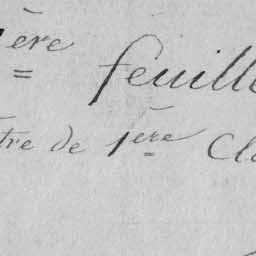 1ère feuille
tre de 1ère Cla